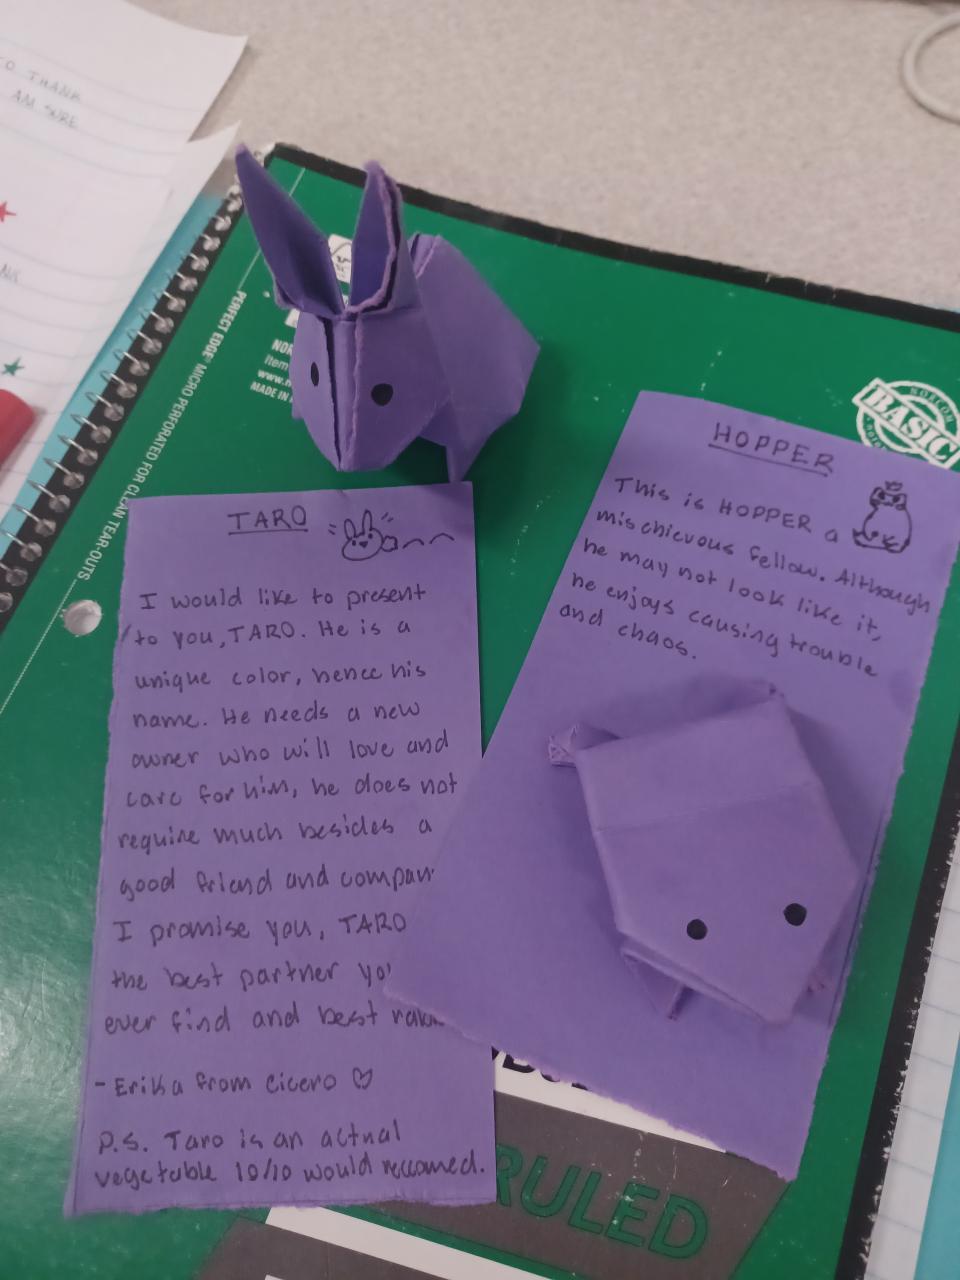 TO THANK
AM SURE
PERFECT EDGE® MICRO PERFORATED FOR CLEAN TEAR-OUTS
Item
www.
MADE IN
NORCOM
BASIC
HOPPER
This is HOPPER a
mischievous fellow. Although
he may not look like it,
he enjoys causing trouble
and chaos.
TARO
I would like to present
to you, TARO. He is a
unique color, hence his
name. He needs a new
owner who will love and
care for him, he does not
require much besides a
good friend and
I promise you, TARO
the best partner
ever find and best
- Erika from Cicero ♡
P.S. Taro is an actual
vegetable 10/10 would reccomed.
RULED